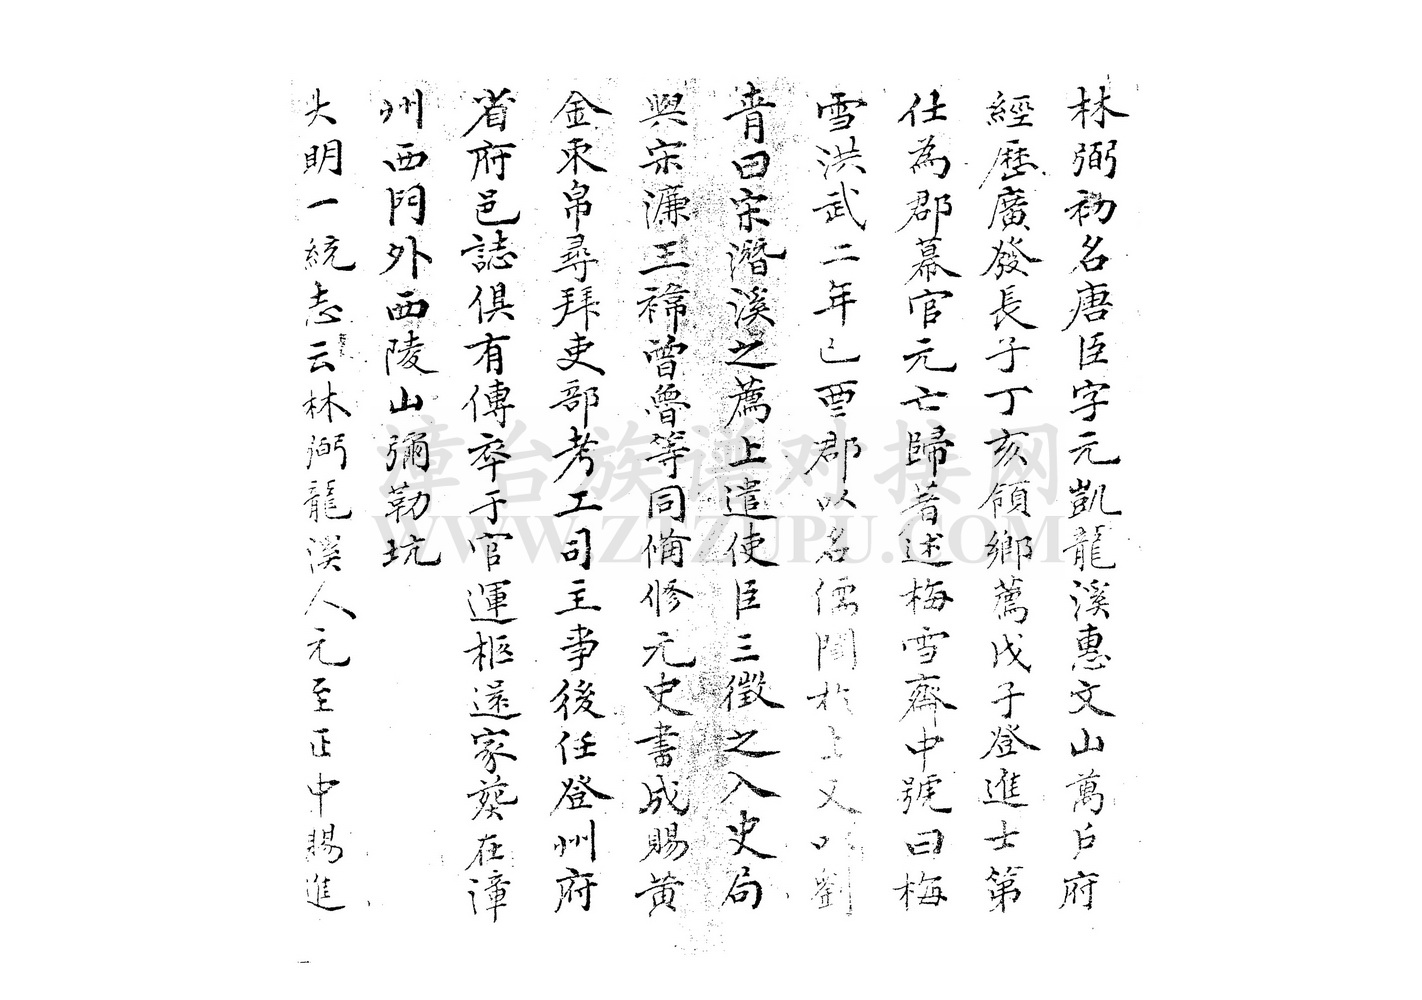 林弼初名唐臣字元凱龍溪惠文山萬戶府
經歷廣發長子丁亥領鄉薦戊子登進士第
仕為郡幕官元亡歸著述梅雪齋中號曰梅
雪洪武二年己酉郡以名儒聞於上又以劉
青曰宋潛溪之薦上遣使臣三徵之入史局
與宋濂王褘曾魯等同俻修元史書成賜黃
金束帛尋拜吏部考工司主事後任登州府
省府邑誌俱有傳卒于官運柩還家葬在漳
州西門外西陵山彌勒坑
大明一統志云林弼龍溪人元至正中賜進
漳台族谱对接网
WWW.ZTZUPU.COM